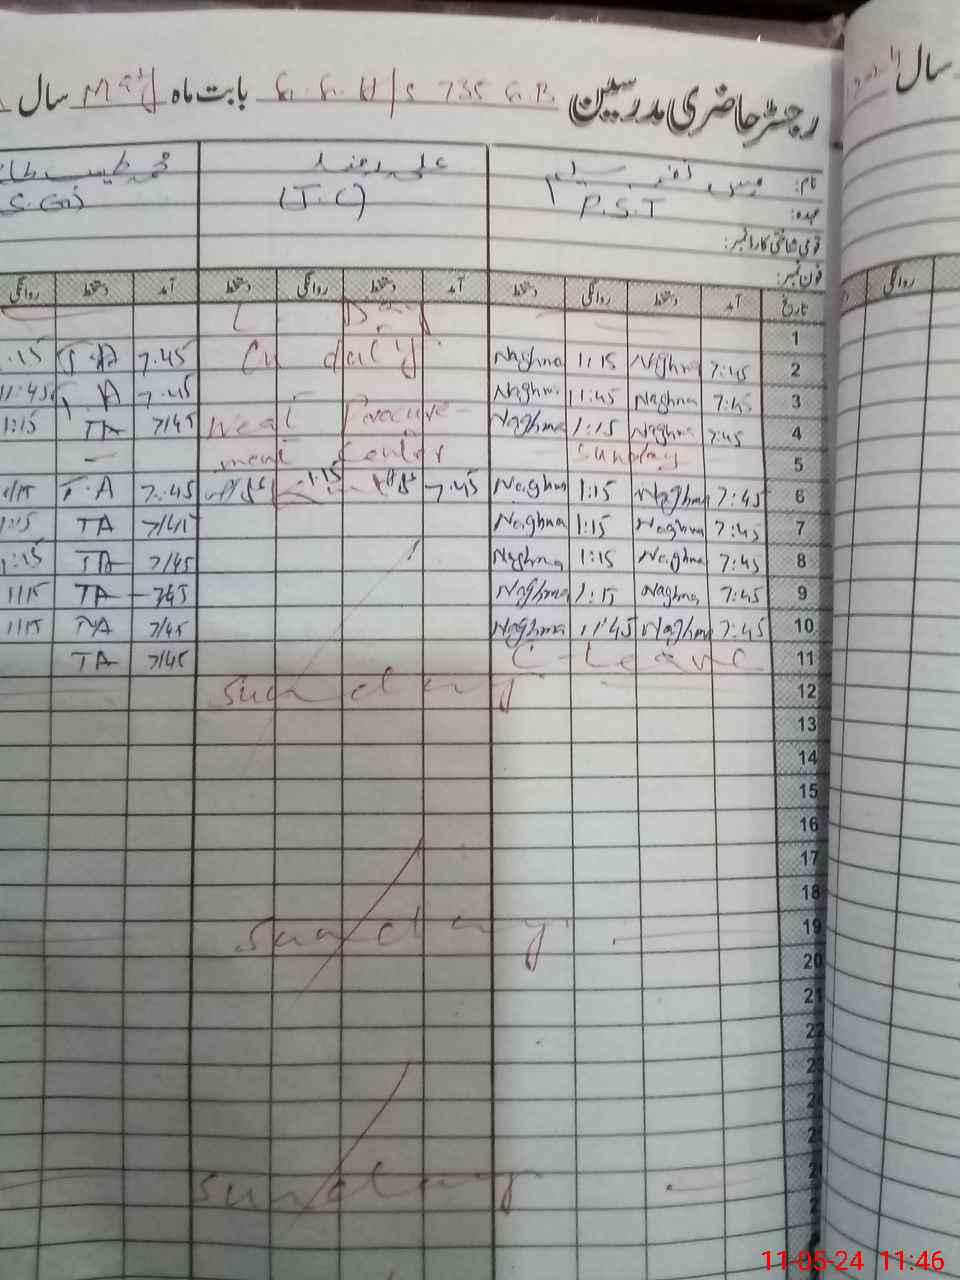 رجسٹر حاضری مدرسین G.G.H/S 735 G.B بابت ماہ May سال
سال
نام: مس نغمہ سلیم علی رضا محمد طیب
عہدہ: P.S.T (J.C) S.G
قومی شناختی کارڈ نمبر:
فون نمبر:
تاریخ آمد دستخط روانگی دستخط آمد دستخط روانگی دستخط آمد دستخط روانگی
روانگی
1 L Day
2 7:45 Naghma 1:15 Naghma On duty 7.45 T.A .15
3 7:45 Naghma 11:45 Naghma 7.45 T.A 11:45
4 7:45 Naghma 1:15 Naghma Weat Procure- 7/45 TA 1:15
5 Sunday ment Center —
6 7:45 Naghma 1:15 Naghma 7.45 1.15 7.45 T.A
7 7:45 Naghma 1:15 Naghma 7/45 TA 1:15
8 7:45 Naghma 1:15 Naghma 7/45 TA 1:15
9 7:45 Naghma 1:15 Naghma 7/45 TA 1/15
10 7:45 Naghma 11:45 Naghma 7/45 TA 1/15
11 C-Leave 7/45 TA
12 Sunday
13
14
15
16
17
18
19 Sunday
20
21
22
Sunday
11-05-24 11:46